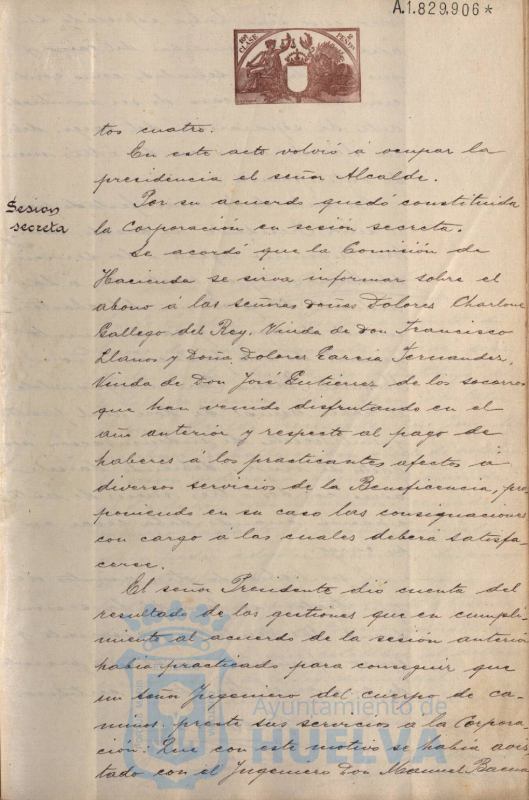 A.1.829.906*
10ª CLASE
2 PESETAS
tos cuatro.
En este acto volvió á ocupar la
presidencia el señor Alcalde.
Sesion
secreta
Por su acuerdo quedó constituida
la Corporación en sesión secreta.
Se acordó que la Comisión de
Hacienda se sirva informar sobre el
abono á las señoras doñas Dolores Charlone
Gallego del Rey, Viuda de don Francisco
Llanos y Doña Dolores Garcia Fernandez,
Viuda de Don José Gutierrez de los socorros
que han venido disfrutando en el
año anterior y respecto al pago de
haberes á los practicantes afectos á
diversos servicios de la Beneficencia, pro
poniendo en su caso las consignaciones
con cargo á las cuales deberá satisfa-
cerse.
El señor Presidente dió cuenta del
resultado de las gestiones que en cumpli-
miento al acuerdo de la sesión anterior
habia practicado para conseguir que
un señor Ingeniero del cuerpo de ca-
minos, preste sus servicios a la Corpora-
ción: Que con este motivo se habia avis
tado con el Ingeniero Don Manuel Baena
Ayuntamiento de
HUELVA